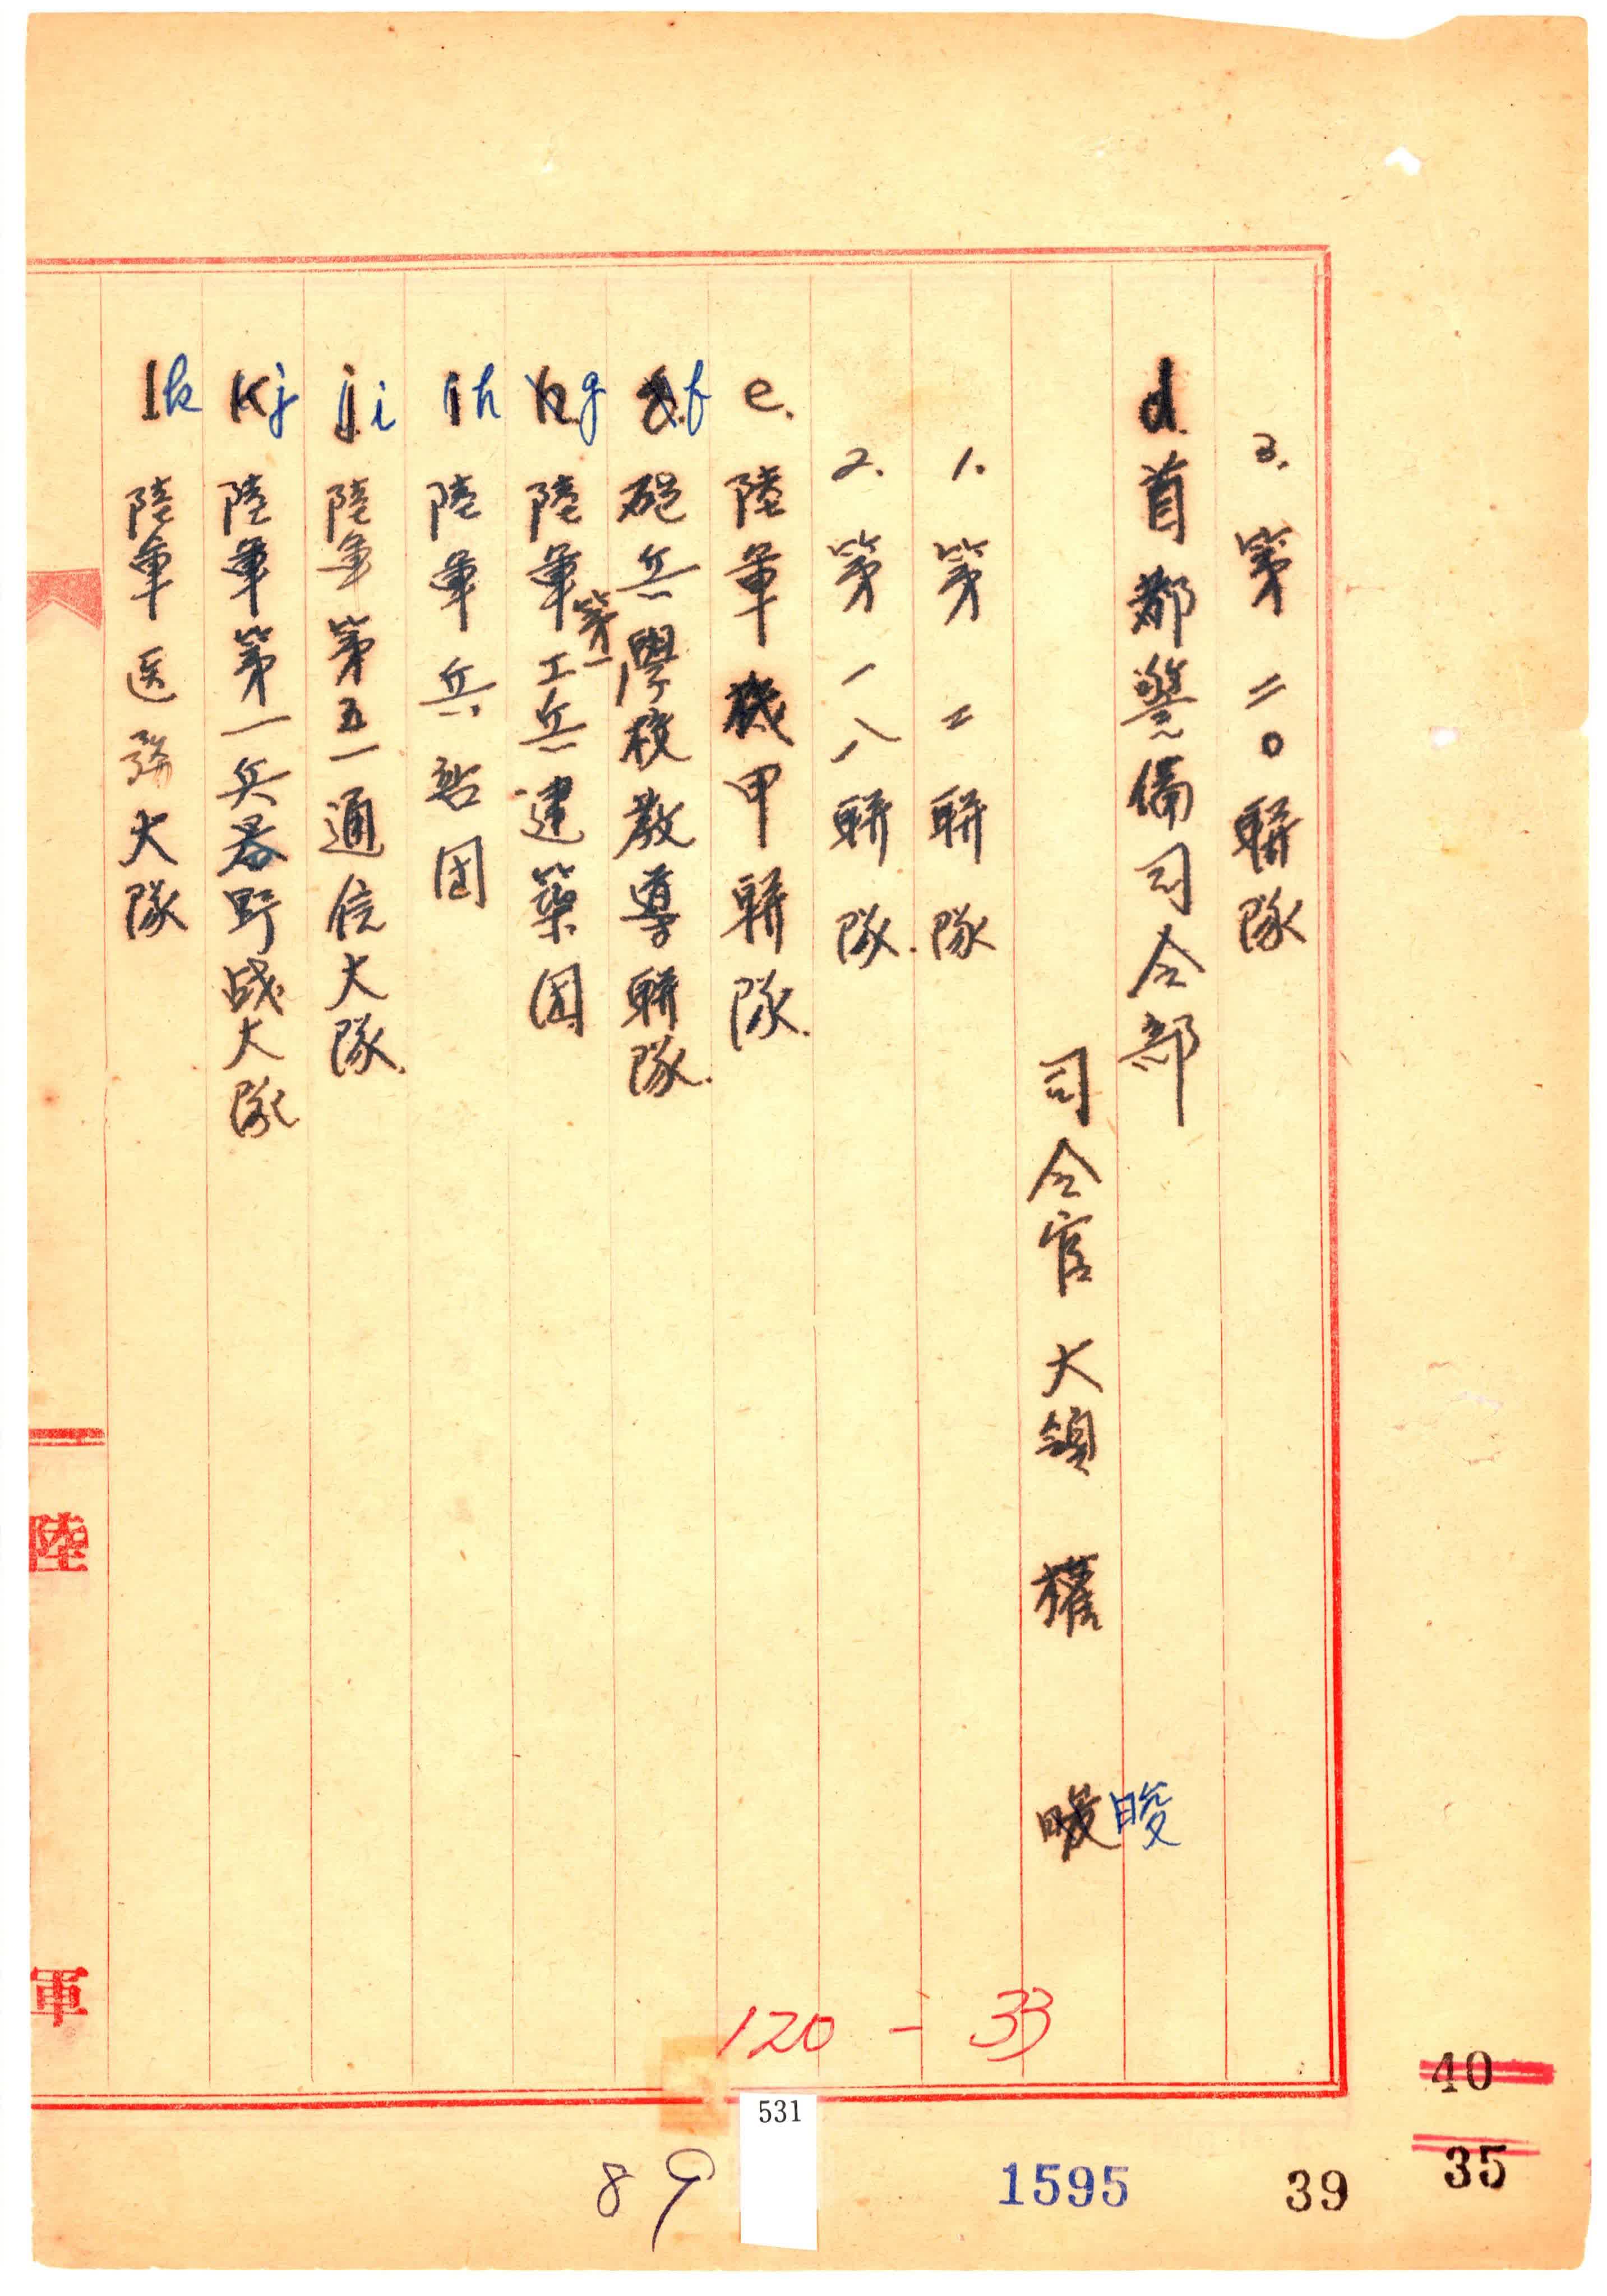 3. 第二〇聯隊
d. 首都警備司令部
司令官 大領 權 暖 晙
1. 第一二聯隊
2. 第一八聯隊.
e. 陸軍機甲聯隊.
f 砲兵學校教導聯隊.
h. g 陸軍第一工兵建築团
i h 陸軍兵站团
j. i 陸軍第五一通信大隊.
k j 陸軍第一兵器野战大隊
l k 陸軍医務大隊
陸
軍
120 - 33
40
35
531
89
1595
39